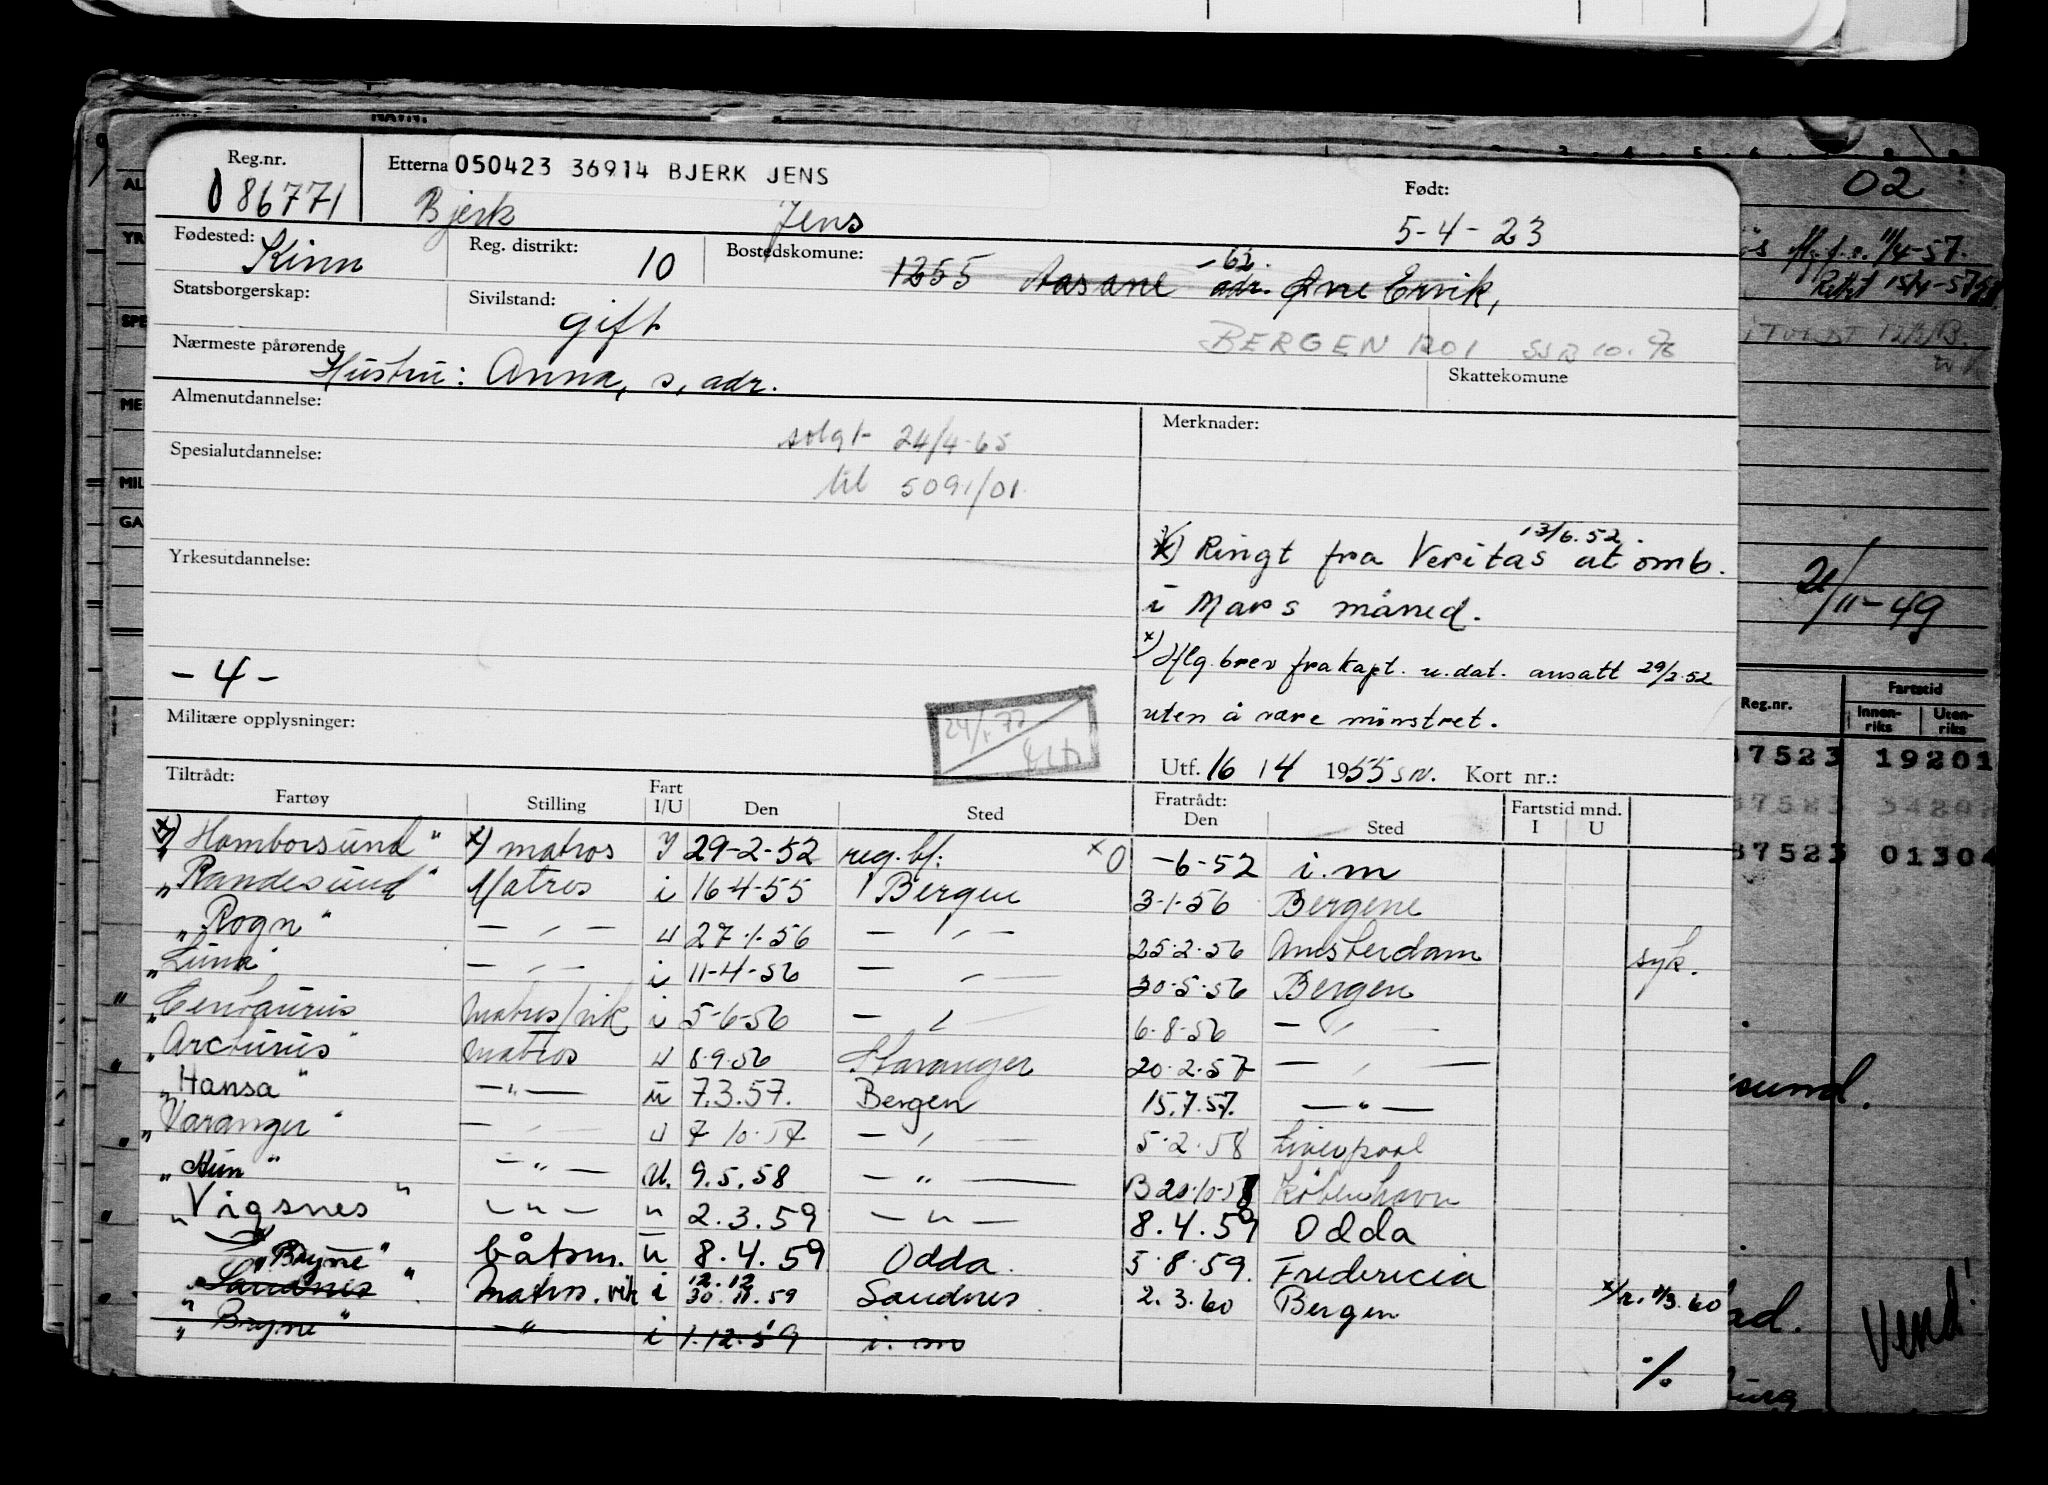 Reg.nr.
086771
Etterna 050423 36914 BJERK JENS
Bjerk Jens
Født:
5-4-23
Fødested:
Kinn
Reg. distrikt:
10
Bostedskomune:
1255 Aasane adr. Øvre Ervik,
-62.
Statsborgerskap:
Sivilstand:
gift
BERGEN 1201 SSB 10.
Nærmeste pårørende
Hustru: Anna, s, adr.
Skattekomune
Almenutdannelse:
solgt 24/4-65
til 5091/01
Merknader:
Spesialutdannelse:
13/6.52.
x) Ringt fra Veritas at omb.
i Mars måned.
Yrkesutdannelse:
x) Iflg. brev fra kapt. u.dat. ansatt 29/2-52
uten å være mønstret.
-4-
Militære opplysninger:
Utf. 16 / 4 1955 Kort nr.:
Tiltrådt:
Fartøy Stilling Fart I/U Den Sted
Fratrådt:
Den Sted
Fartstid mnd.
I U
x) "Homborsund" x) matros 29-2-52 reg. bf: x 0 -6-52 i.m
"Randesund" Matros i 16-4-55 Bergen 3-1-56 Bergen
"Rogn" — " — u 27.1.56 — " — 25.2.56 Amsterdam syk.
"Luna" — " — i 11-4-56 — " — 30-5-56 Bergen
"Centaurus" matros/vik i 5-6-56 — " — 6-8-56 — " —
"Arcturus" matros u 8.9.56 Stavanger 20.2.57 — " —
"Hansa" — " — u 7.3.57. Bergen 15.7.57. — " —
"Varanger" — " — u 7 10.57 — " — 5.2.58 Liverpool
— " — u. 9.5.58 — " — B 20.10.58 København
"Vigsnes" — " — " 2.3.59 — " — 8.4.59 Odda
"Bryne" båtsm. u 8.4.59 Odda. 5.8.59. Fredericia
"Sandnes" matros. vik i 12.12 30.11.59 Sandnes 2.3.60 Bergen
"Bryne" — " — i 1.12.59 i.m
%
02
11/4-57.
Rettet 15/4-57
21/11-49
Reg.nr.
Fartstid
Innen-riks Uten-riks
37523 19201
37523
37523 0130
sund.
ad.
Vend!